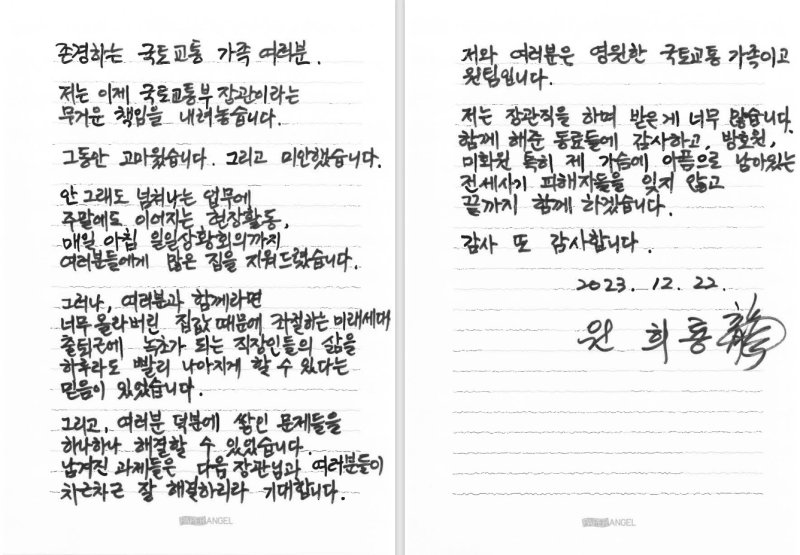 존경하는 국토교통 가족 여러분.
저는 이제 국토교통부 장관이라는
무거운 책임을 내려놓습니다.
그동안 고마웠습니다. 그리고 미안했습니다.
안 그래도 넘쳐나는 업무에
주말에도 이어지는 현장활동,
매일 아침 일일상황회의까지
여러분들에게 많은 짐을 지워드렸습니다.
그러나, 여러분과 함께라면
너무 올라버린 집값 때문에 좌절하는 미래세대
출퇴근에 녹초가 되는 직장인들의 삶을
하루라도 빨리 나아지게 할 수 있다는
믿음이 있었습니다.
그리고, 여러분 덕분에 쌓인 문제들을
하나하나 해결할 수 있었습니다.
남겨진 과제들은 다음 장관님과 여러분들이
차근차근 잘 해결하리라 기대합니다.
PAPER ANGEL
저와 여러분은 영원한 국토교통 가족이고
원팀입니다.
저는 장관직을 하며 받은게 너무 많습니다.
함께 해준 동료들에 감사하고, 방호원,
미화원 특히 제 가슴에 아픔으로 남아있는
전세사기 피해자들을 잊지 않고
끝까지 함께 하겠습니다.
감사 또 감사합니다.
2023. 12. 22.
원 희 룡 龍
PAPER ANGEL